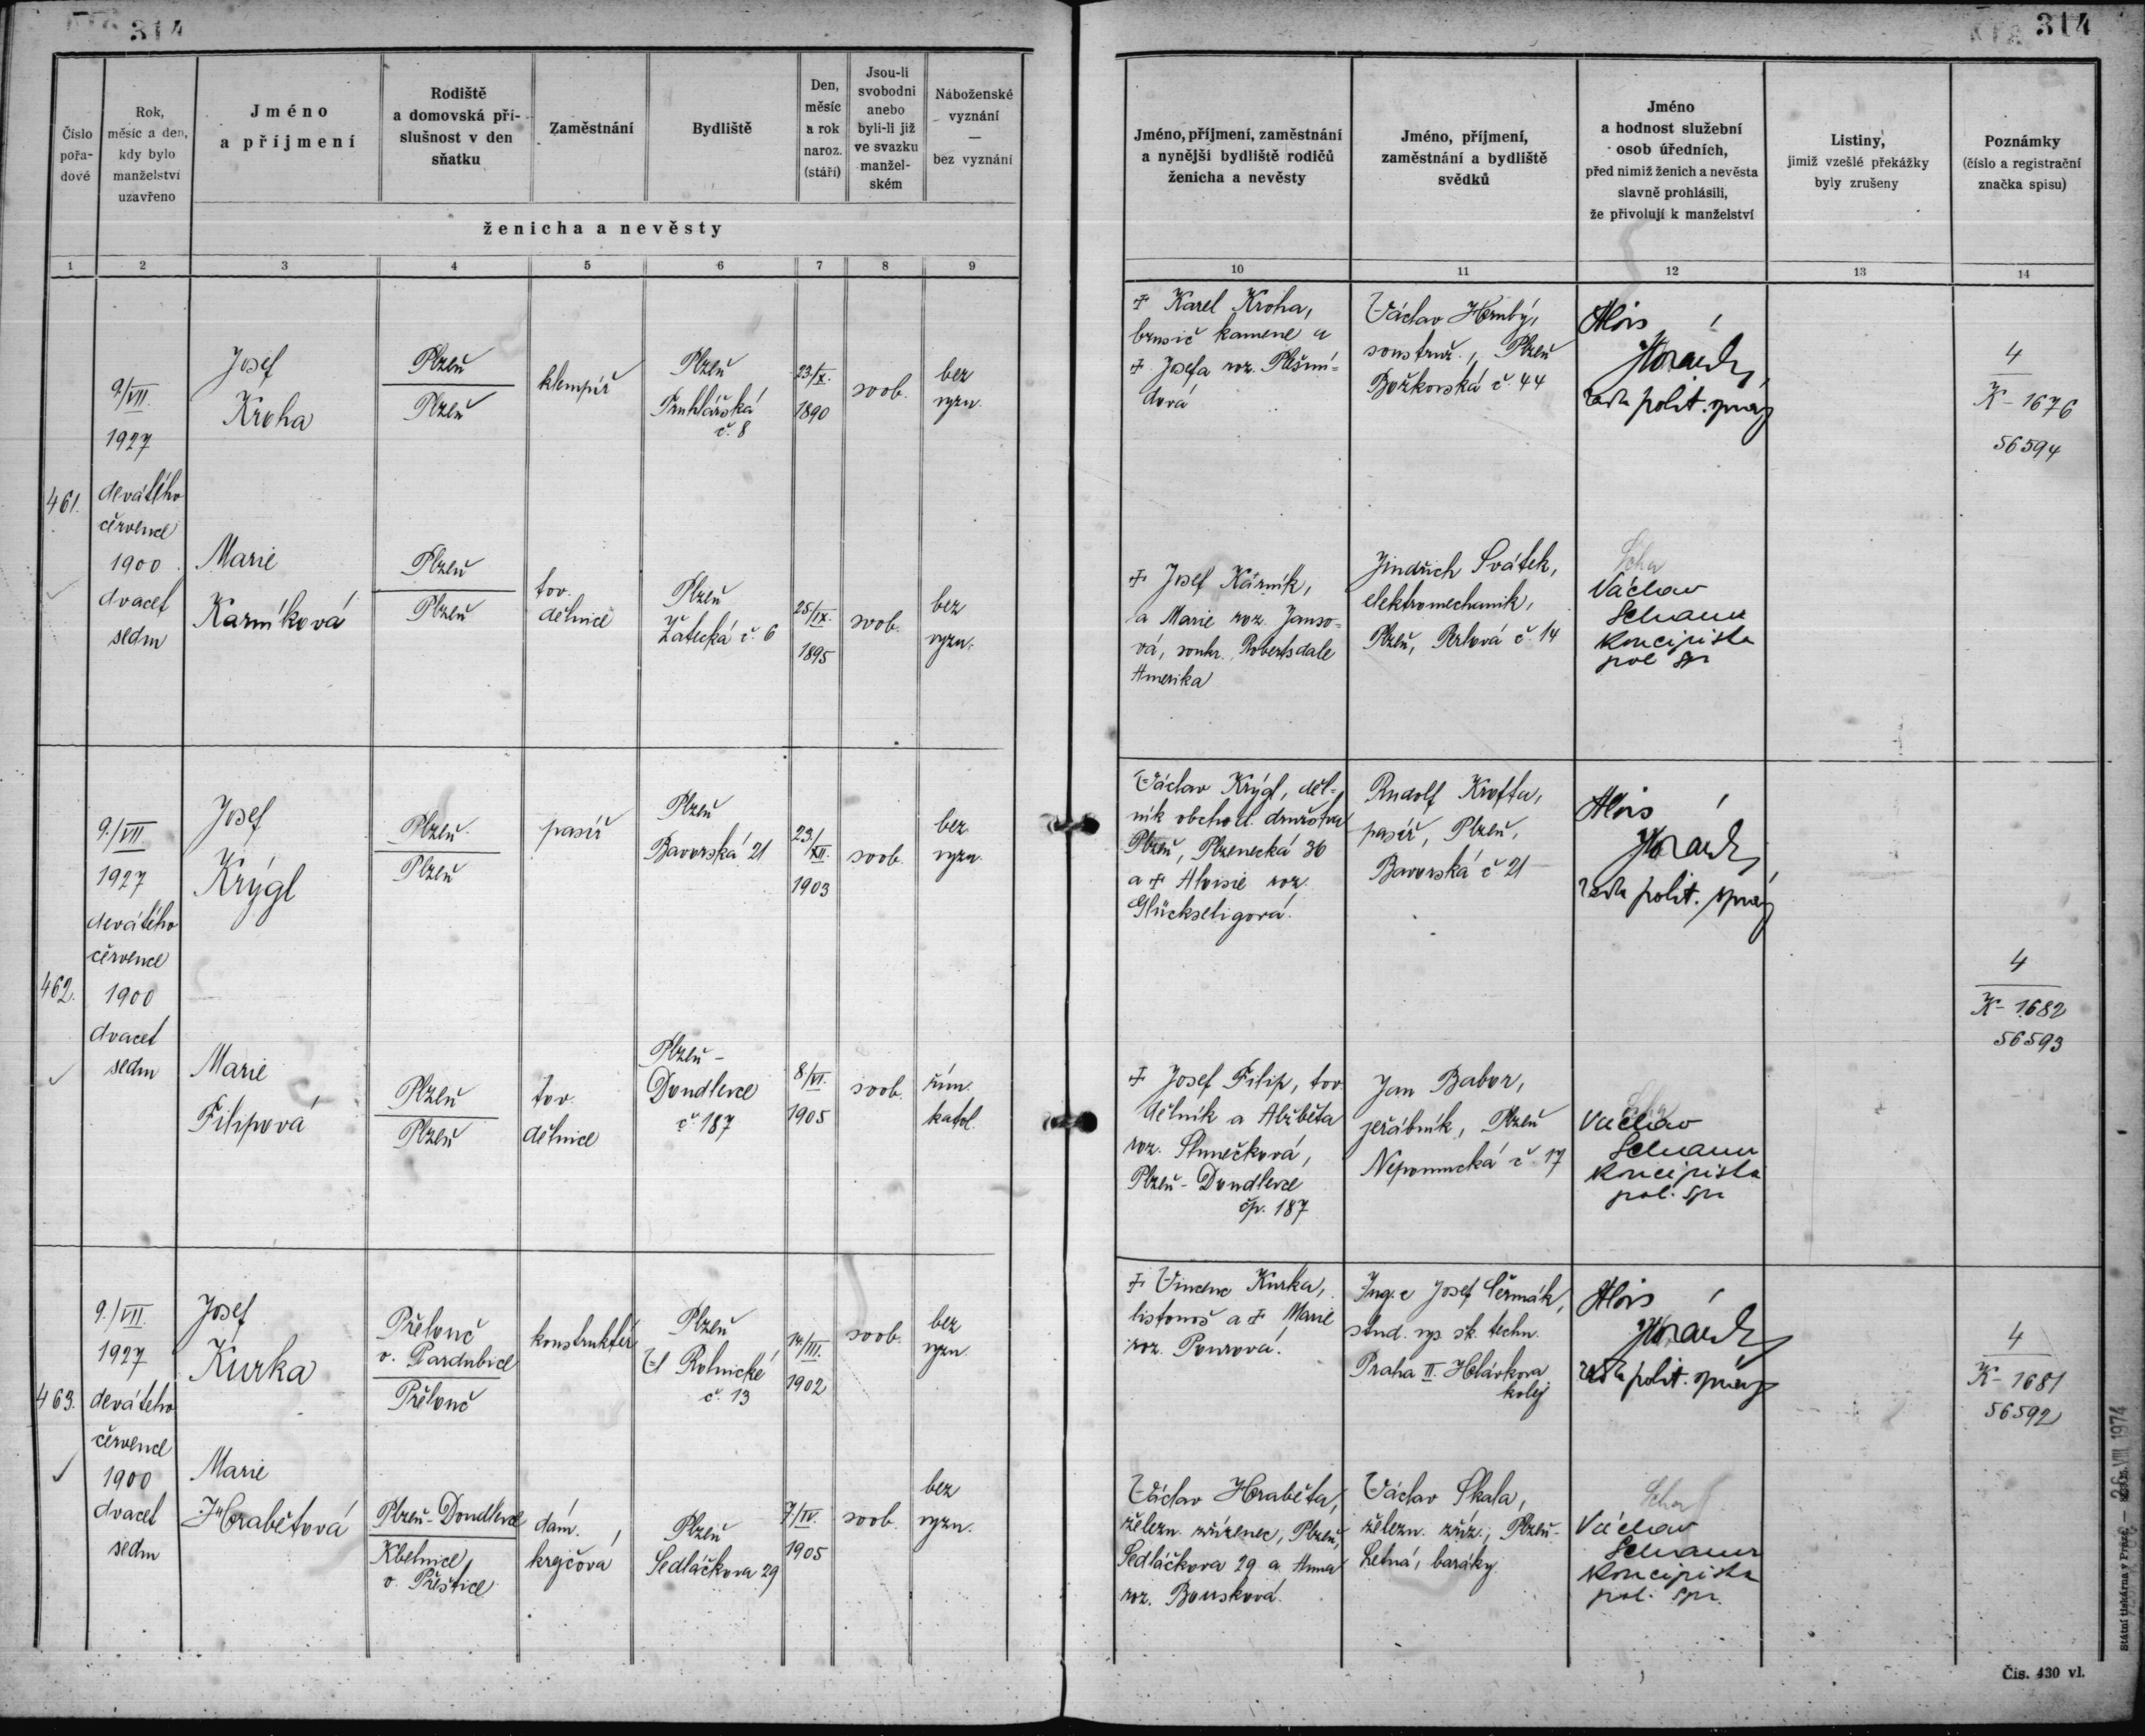 314
Číslo
pořa-
dové
Rok,
měsíc a den,
kdy bylo
manželství
uzavřeno
Jméno
a příjmení
Rodiště
a domovská pří-
slušnost v den
sňatku
Zaměstnání
Bydliště
Den,
měsíc
a rok
naroz.
(stáří)
Jsou-li
svobodni
anebo
byli-li již
ve svazku
manžel-
ském
Náboženské
vyznání
—
bez vyznání
ženicha a nevěsty
1 2 3 4 5 6 7 8 9
461.
9/VII.
1927
devátého
července
1900
dvacet
sedm
Josef
Kroha
Plzeň
Plzeň
klempíř
Plzeň
Truhlářská
č. 8
23/X.
1890
svob.
bez
vyzn.
Marie
Karníková
Plzeň
Plzeň
tov.
dělnice
Plzeň
Žatecká č. 6
25/IX.
1895
svob.
bez
vyzn.
462.
9./VII
1927
devátého
července
1900
dvacet
sedm
Josef
Krýgl
Plzeň
Plzeň
pasíř
Plzeň
Bavorská 21
23/
XII.
1903
svob.
bez
vyzn.
Marie
Filipová
Plzeň
Plzeň
tov.
dělnice
Plzeň -
Doudlevce
č 187
8/VI.
1905
svob.
řím.
katol.
463.
9./VII.
1927
devátého
července
1900
dvacet
sedm
Josef
Kurka
Přelouč
o. Pardubice
Přelouč
konstruktér
Plzeň
U Rolnické
č. 13
14/III.
1902
svob.
bez
vyzn
Marie
Hrabětová
Plzeň-Doudlevce
Kbelnice
o. Přeštice
dám.
krejčová
Plzeň
Sedláčkova 29
7/IV.
1905
svob.
bez
vyzn.
314
Jméno, příjmení, zaměstnání
a nynější bydliště rodičů
ženicha a nevěsty
Jméno, příjmení,
zaměstnání a bydliště
svědků
Jméno
a hodnost služební
osob úředních,
před nimiž ženich a nevěsta
slavně prohlásili,
že přivolují k manželství
Listiny,
jimiž vzešlé překážky
byly zrušeny
Poznámky
(číslo a registrační
značka spisu)
10 11 12 13 14
+ Karel Kroha,
brusič kamene a
+ Josefa roz.
Václav
soustruž., Plzeň
Božkovská č. 44
Alois
rada polit. správy
4
K - 1676
56594
+ Josef Kárník,
a Marie roz. Janso-
vá, soukr. Robertsdale
Amerika
Jindřich Svátek,
elektromechanik,
Plzeň, Perlová č. 14
Václav
Schauer
koncipista
pol spr
Václav Krýgl, děl-
ník obchod. družstva
Plzeň, Plzenecká 36
a + Aloisie roz.
Glückseligová.
Rudolf Krofta,
pasíř, Plzeň,
Bavorská č 21
Alois
rada polit. správy
4
K - 1682
56593
+ Josef Filip, tov.
dělník a Alžběta
roz. Slunečková,
Plzeň - Doudlevce
čp. 187
Jan Babor,
jeřábník, Plzeň
Nepomucká č. 17
Václav
Schauer
koncipista
pol. spr
+ Vincenc Kurka,
listonoš a + Marie
roz. Pourová.
Ing. c Josef Čermák,
stud. vys. šk. techn.
Praha II. Hlávkova
kolej
Alois
rada polit. správy
4
K - 1681
56592
Václav Hraběta,
železn. zřízenec, Plzeň,
Sedláčkova 29 a Anna
roz. Boušková.
Václav Skala,
železn. zříz., Plzeň-
Letná, baráky
Václav
Schauer
koncipista
pol. spr.
Státní tiskárna v Praze.
26. VIII 1974
Čis. 430 vl.